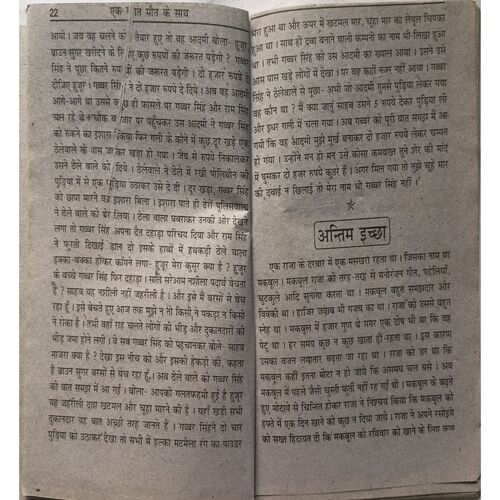 22
एक रात मौत के साथ
आयी। जब वह चलने को तैयार हुए तो वह आदमी बोला- हुजूर
ब्राउन सुगर खरीदने के लिए कुछ रुपयों की जरूरत पड़ेगी? गब्बर
सिंह ने पूछा कितने रुपयों की जरूरत पड़ेगी। दो हजार रुपये दे
दीजिए हुजूर। गब्बर सिंह ने दो हजार रुपये दे दिये। अब वह आदमी
आगे-आगे था उससे कुछ ही फासले पर गब्बर सिंह और राम सिंह
चल रहे थे। चौक बाजार पर पहुंचकर उस आदमी ने गब्बर सिंह
को रुकने का इशारा किया फिर गली के कोने में कुछ दूर खड़े एक
ठेलेवाले के पास जाकर खड़ा हो गया। जेब से रुपये निकालकर
उसने ठेले वाले को दिये। ठेलेवाले ने ठेले में रखी पोलिथीन की
पुड़िया में से एक पुड़िया उठाकर उसे दे दी। दूर खड़ा, गब्बर सिंह
को छापा मारने का इशारा मिला। इशारा पाते ही ढेरों पुलिसवाला
ने ठेले वाले को घेर लिया। ठेला वाला घबराकर उनकी ओर देखने
लगा तो गब्बर सिंह अपना देत दहाड़ा परिचय दिया और राम सिंह
ने फुरती दिखाई डाल दी उसके हाथों में हथकड़ी ठेले वाला
हक्का-बक्का होकर कांपने लगा- हुजूर मेरा कुसुर क्या है? हुजूर
के बच्चे गब्बर सिंह फिर दहाड़ा। सालि सरेआम नशीला पदार्थ बेचता
है? साहब यह नशीली नहीं जहरीली है। और इसे मैं बरसों से बेच
रहा हूं। इसे बेचते हुए आज तक मुझे न तो किसी ने पकड़ा न किसी
ने रोका है। तभी वहां राह चलते लोगों की भीड़ और दुकानदारों की
भीड़ जमा होने लगी। वे सभी गब्बर सिंह को पहचानकर बोले- साहब
माजरा क्या है? देखा इस नीच को और इसकी हेकड़ी को, कहता
है ब्राउन सुगर बरसों से बेच रहा हूं,। अब ठेले वाले को गब्बर सिंह
की बात समझ में आ गई। बोला- आपको गलतफहमी हुई है हुजूर
यह जहरीली दवा खटमल और चूहा मारने की है। यहां खड़ी सभी
दुकानदार यह बात अच्छी तरह जानते है। गब्बर सिंहने दो चार
पुड़िया को उठाकर देखा तो सभी में हल्का मटमैला रंग का पाउडर
भरा हुआ था और ऊपर में खटमल मार, चूहा मार का लेबुल चिपका
हुआ था। साथ ही दवा बनाने वाली कम्पनी का नाम भी लिखा हुआ
था। गब्बर सिंह को उस आदमी का ख्याल आया। उसने उसे
आस पास खड़े लोगों में देखा। पर वह कहीं नजर नहीं आया। गब्बर
सिंह ने ठेलेवाले से पूछा- अभी जो आदमी तुमसे पुड़िया लेकर गया
वह कौन था? मैं क्या जानूं साहब उसने 5 रुपये देकर पुड़िया ली
और इधर गली में चला गया। अब गब्बर को पूरी बात समझ में आ
गयी कि वह आदमी मुझे मूर्ख बनाकर दो हजार रुपये लेकर चम्पत
हो गया। उन्होंने मन ही मन उसे कोसा कमवख्त तुने शेर की मांद
में घुसकर दो हजार रुपये कुतरे हैं। अगर मिल गया तो तुझे चूहे मार
की दवाई न खिलाई तो मेरा नाम भी गब्बर सिंह नहीं।'
अन्तिम इच्छा
एक राजा के दरबार में एक मसखरा रहता था। जिसका नाम था
मकबूल। मकबूल राजा को तरह-तरह से मनोरंजन गीत, पहेलियां,
चुटकुले आदि सुनाया करता था। मकबूल बहुत समझदार और
विवेकी था। हाजिर जवाब भी गजब का था। राजा को उससे बहुत
स्नेह था। मकबूल में हजार गुण थे मगर एक दोष भी था कि वह
पेटू था। हर समय कुछ न कुछ खाता ही-रहता था। इस कारण
उसका वजन लगातार बढ़ता जा रहा था। राजा को डर था कि
मकबूल कहीं इतना मोटा न हो जाये कि असमय चल बसे। अब
मकबूल में पहले जैसी चुस्ती फुर्ती नहीं रह गई थी। मकबूल के बढ़ते
हुए मोटापे से चिन्तित होकर राजा ने निश्चय किया कि मकबूल को
हफ्ते में एक दिन खाने को कुछ न दिया जाये। राजा ने अपने रसोइये
को सख्त हिदायत दी कि मकबूल को रविवार को खाने के लिए कुछ